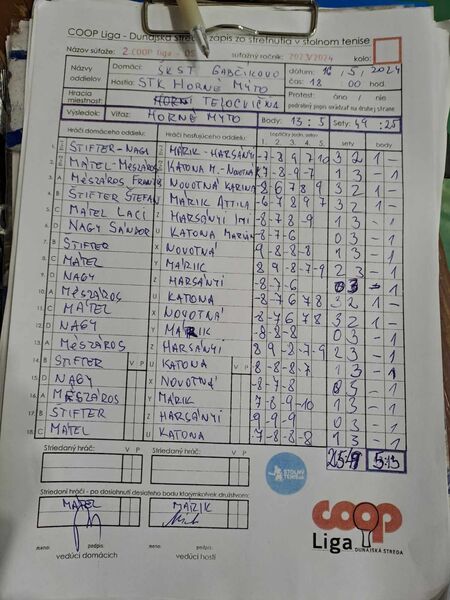 COOP Liga - Dunajská Streda zápis zo stretnutia v stolnom tenise
Názov súťaže: 2. COOP liga - DS súťažný ročník: 2023/2024 kolo:
Názvy oddielov Domáci: ŠKST GABČIKOVO dátum: 16, 5, 2024
Hostia: STK HORNÉ MÝTO čas: 18 00 hod.
Hracia miestnosť: TELOCVIČŇA Protest: áno / nie
podrobný popis uvádzať na druhej strane
Výsledok: Víťaz: HORNÉ MÝTO Body: 13 : 5 Sety: 49 : 25
Hráči domáceho oddielu: Hráči hosťujúceho oddielu: sety body
1. 2. 3. 4. 5.
ŠTIFTER - NAGY MARIK - HARSÁNYI -7 -8 9 7 10 3 2 1 -
MATEL - MÉSZÁROS KATONA M. - NOVOTNÁ 1 3 - 1
3. A MÉSZÁROS NOVOTNÁ KARINA 3 2 1 -
4. B ŠTIFTER ŠTEFAN MARIK ATTILA 3 2 1 -
5. C MATEL LACI HARSÁNYI -8 7 -8 -9 1 3
6. D NAGY SÁNDOR U KATONA -8 -7 -6 0 3 - 1
7. B ŠTIFTER X NOVOTNÁ 9 -8 -8 -8 1 3 - 1
8. C MATEL Y MARIK 8 9 -8 -7 -9 2 3 - 1
9. D NAGY Z HARSÁNYI -8 -7 -6 0 3 - 1
10. A MÉSZÁROS U KATONA -8 -7 6 7 8 3 2 1 -
11. C MATEL X NOVOTNÁ -8 -7 6 7 8 3 2 1 -
12. D NAGY Y MARIK -8 -8 -8 0 3 - 1
13. A MÉSZÁROS Z HARSÁNYI 8 9 -8 -7 -9 2 3 - 1
14. B STIFTER V P U KATONA V P 8 -8 -8 -7 1 3 - 1
15. D NAGY X NOVOTNÁ -8 -7 -8 - 1
16. A MÉSZÁROS Y MARIK 7 -8 -9 -10 1 3 - 1
17. B STIFTER Z HARSÁNYI 0 3 - 1
18. C MATEL U KATONA 7 -8 -8 -8 1 3 - 1
Striedaný hráč: V P Striedaný hráč: V P 5:13
STOLNÝ TENIS
Striedaní hráči - po dosiahnutí desiateho bodu ktorýmkoľvek družstvom:
MATEL MARIK
meno: podpis: meno: podpis:
vedúci domácich vedúci hostí
coop
Liga DUNAJSKÁ STREDA